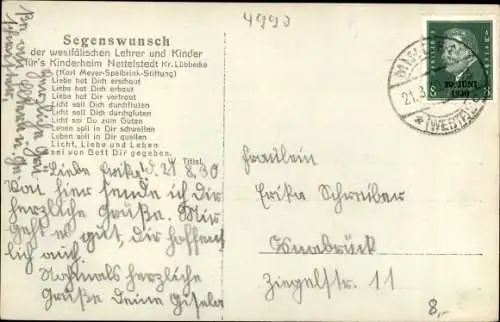 4990
Segenswunsch
der westfälischen Lehrer und Kinder
für's Kinderheim Nettelstedt Kr. Lübbecke
(Karl Meyer-Spelbrink-Stiftung)
Liebe hat Dich erschaut
Liebe hat Dich erbaut
Liebe hat Dir vertraut
Licht soll Dich durchfluten
Licht soll Dich durchgluten
Licht sei Du zum Guten
Leben soll in Dir schwellen
Leben soll in Dir quellen
Licht, Liebe und Leben
sei von Gott Dir gegeben.
Titel.
Liebe Erika! d. 21.8.30
Von hier sende ich dir
herzliche Grüße. Mir
geht es gut, dir hoffent
lich auch.
Nochmals herzliche
Grüße Deine Gisela
30. JUNI
1930
8
21.
(WESTF)
Fräulein
Erika Schreiber
Osnabrück
Ziegelstr. 11
8,-